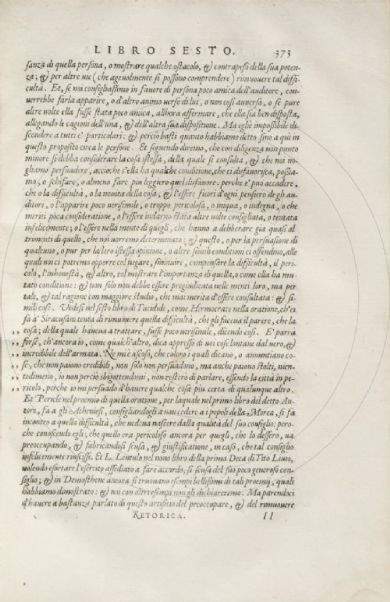 LIBRO SESTO. 373
sanza di quella persona, o mostrare qualche ostacolo, & contrapeso della sua poten-
za; & per altre vie (che agevolmente si possono comprendere) rimuovere tal diffi-
cultà. Et, se noi consigliassimo in favore di persona poco amica dell'auditore, con-
verrebbe farla apparire, o d'altro animo verso di lui, o non così aversa, o se pure
altre volte ella fusse stata poco amica, allhora affermare, che ella sia ben disposta,
allegando le cagioni dell'una, & dell'altra sua dispositione. Ma egli è impossibile di-
scendere a tutti e' particolari: & perciò basti quanto habbiamo detto sino a qui in
questo proposito circa le persone. Et seguendo diremo, che con diligenza non punto
minore si debba considerare la cosa stessa, della quale si consulta, & che noi vo-
gliamo persuadere, acciochè s'ella ha qualche conditione, che ci disfavorisca, possia-
mo, o schifare, o almeno fare più leggiero quel disfavore: perche e' può accadere,
che o la difficultà, o la novità della cosa, & l'essere fuori d'ogni pensiero degli au-
ditori, o l'apparire poco verisimile, o troppo pericolosa, o iniqua, o indegna, o che
meriti poca consideratione, o l'essere in fatto stata altre volte consigliata, o tentata
infelicemente; o l'essere nella mente di quegli, che hanno a deliberare già quasi al
tramenti di quello, che noi vorremo determinato; & questo, o per la persuasione di
qualcuno, o pur per la loro stessa opinione, o altre simili conditioni ci offendino, alle
quali noi ci potremo opporre col fuggire, scusare, compensare la difficultà, il peri-
colo, l'inhonestà, & altro, col mostrare l'importanza di quella, o come ella ha mu-
tato conditione: & non solo non debbe essere pregiudicata nelle menti loro, ma per
tali, & tal ragione con maggiore studio, che mai merita d'essere consultata: & si-
mili cose. Vedesi nel sesto libro di Tucidide, come Hermocrate nella oratione, ch'ei
fa a' Siracusani tenta di rimuovere questa difficultà, che gli faceva il parere, che la
cosa; della quale haveva a trattare, fusse poco verisimile, dicendo così. E' parrà
forse, ch'ancora io, come qualch'altro, dica appresso di voi cose lontane dal vero, &
incredibile dell'armata. Ne mi è ascoso, che coloro i quali dicano, o annuntiano co-
se, che non paiono credibili, non solo non persuadono, ma anche paiono stolti, nien-
tedimeno, io non perciò sbigottendomi, non resterò di parlare, essendo la città in pe-
ricolo, perche io mi persuado d'havere qualche cosa più certa di qualunque altro.
Et Pericle nel proemio di quella oratione, per la quale nel primo libro del detto Au-
tore, fa a gli Atheniesi, consigliandogli a non cedere a i popoli della Morea, si fa
incontro a quella difficultà, che vedeva nascere dalla qualità del suo consiglio: però-
che conoscendo egli, che quello era pericoloso ancora per quegli, che lo dessero, va
preoccupando, & fabricandosi scusa, & giustificatione, in caso, che tal consiglio
infelicemente riuscisse. Et L. nel nono libro della prima Deca di Tito Livio,
volendo esortare l'esercito assediato a fare accordo, si scusa del suo poco generoso con-
siglio; & in Demosthene ancora si truovano esempi bellissimi di tali proemij, quali
habbiamo dimostrato: & noi con altro esempio non gli dichiareremo. Ma parendoci
d'havere a bastanza parlato di questo artifitio del preoccupare, & del rimuovere
RETORICA. II